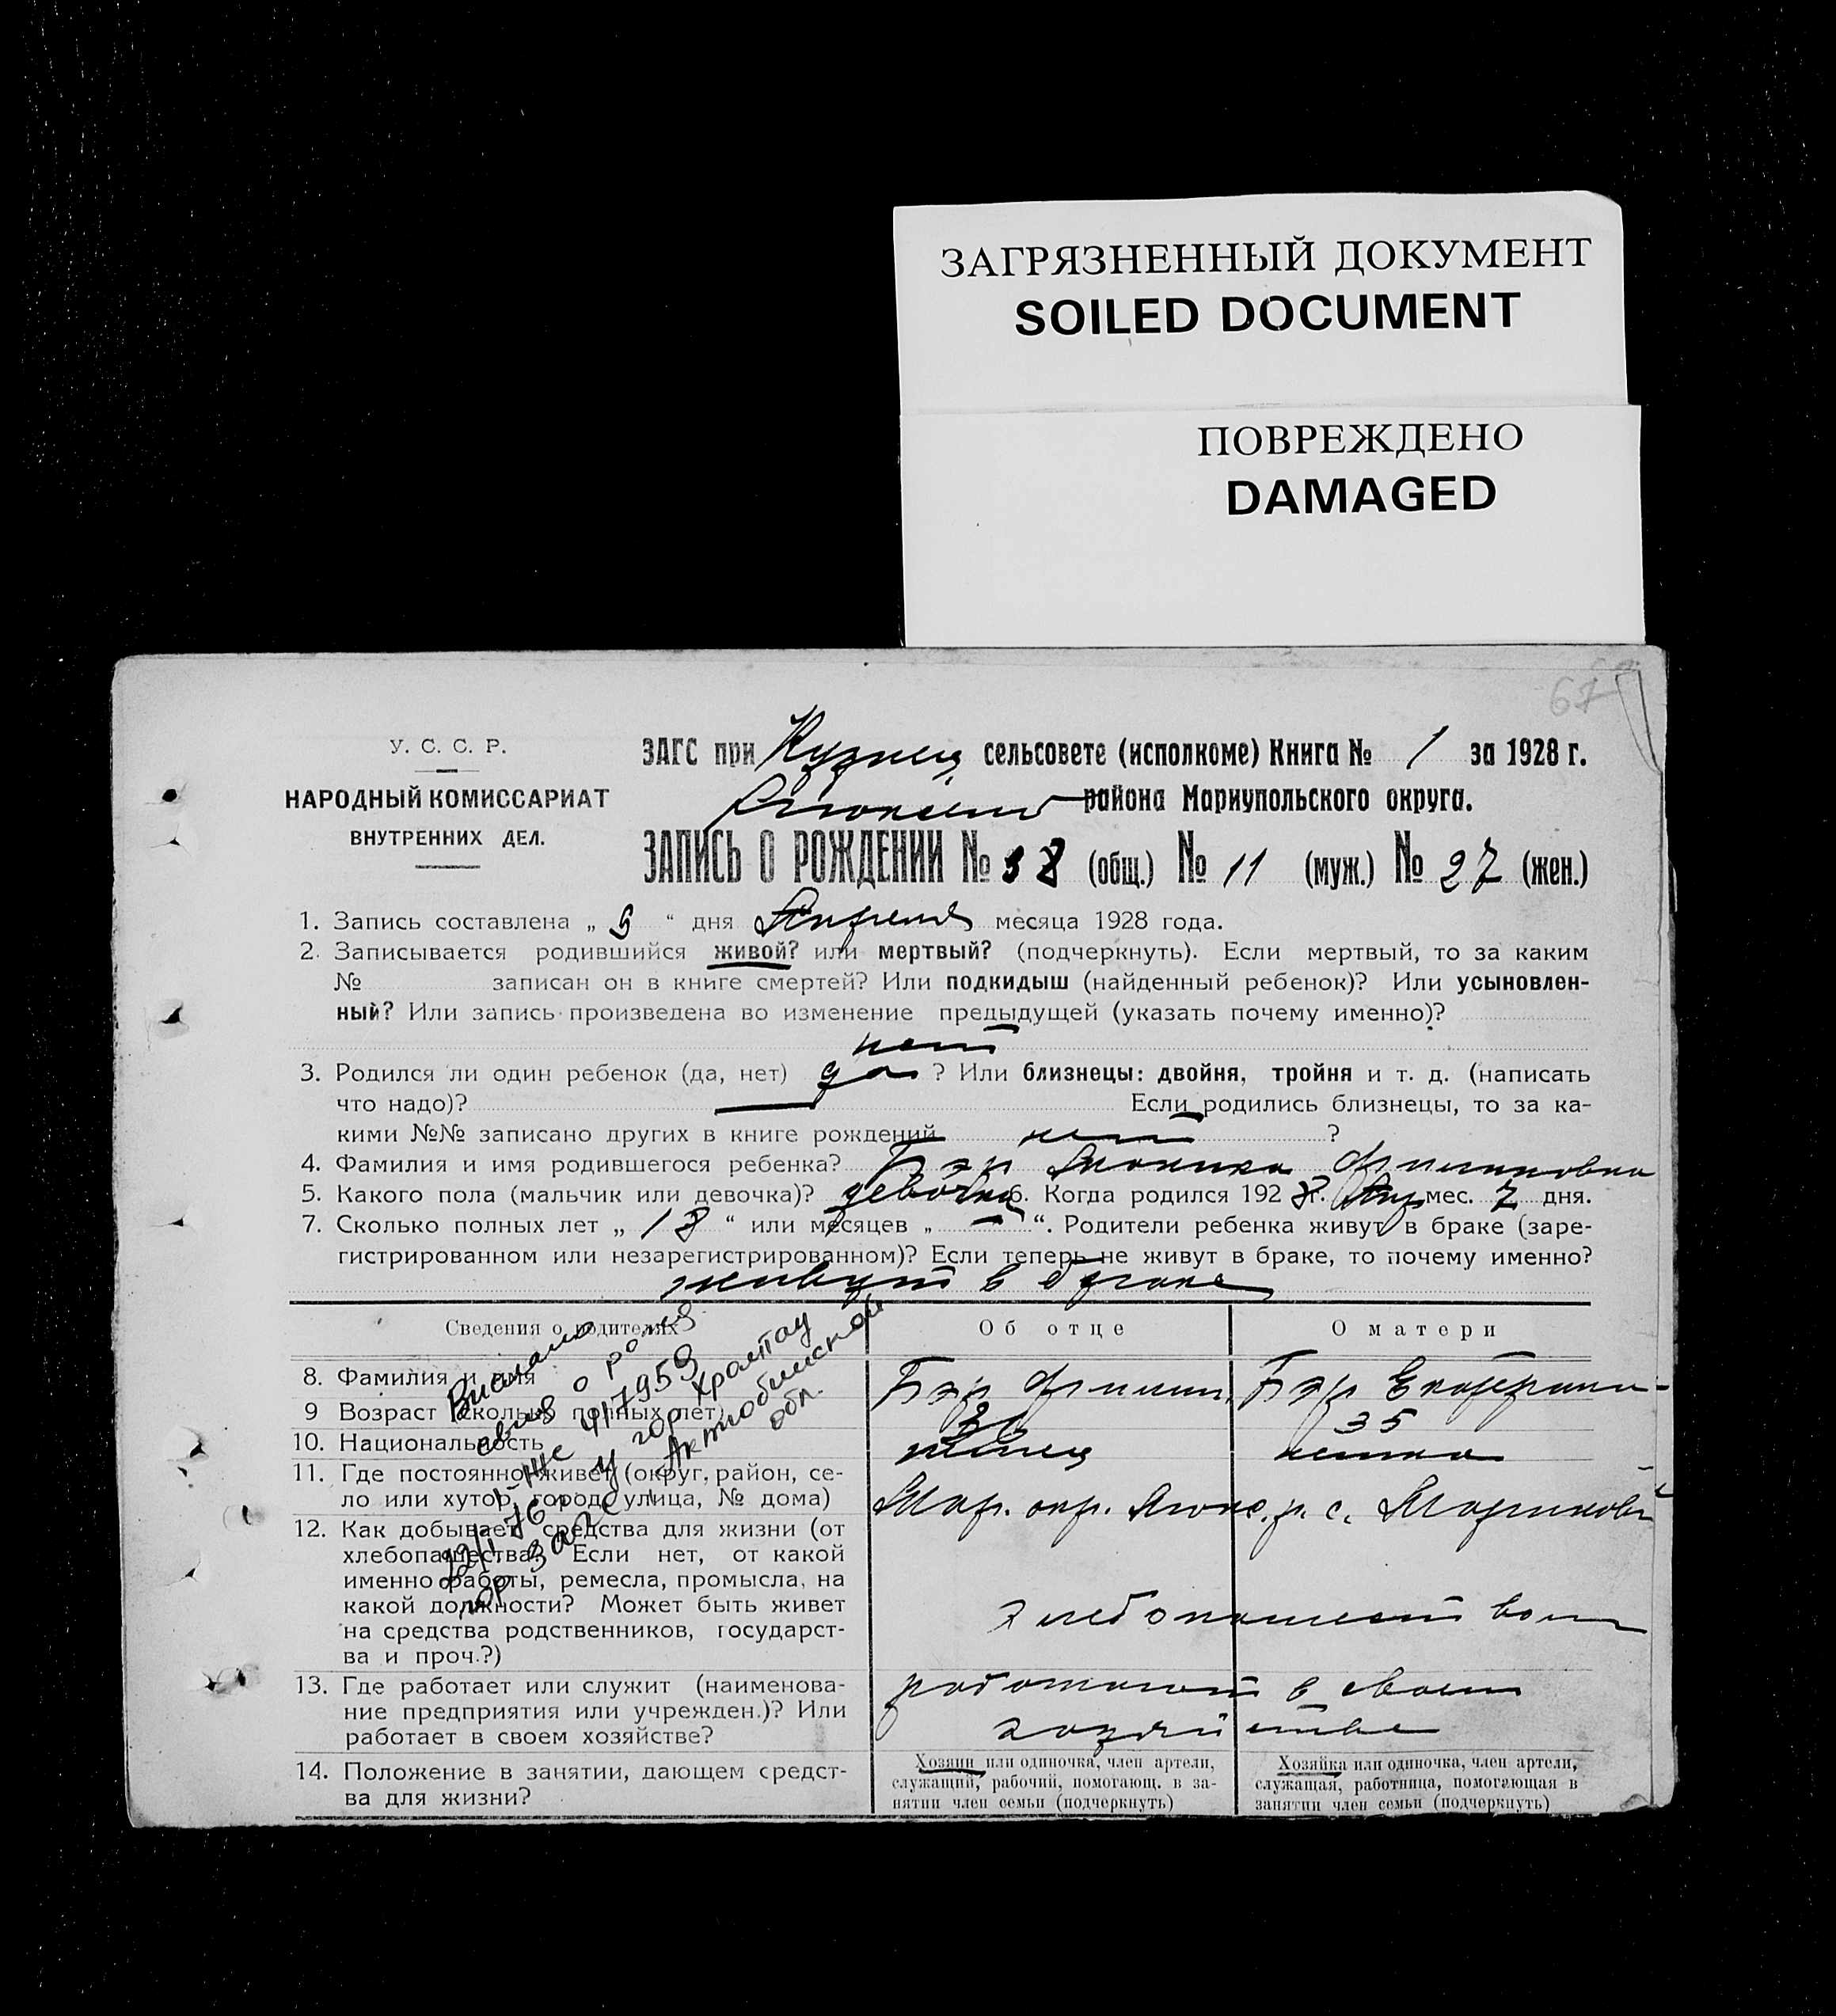 ЗАГРЯЗНЕННЫЙ ДОКУМЕНТ
SOILED DOCUMENT
ПОВРЕЖДЕНО
DAMAGED
67
У. С. С. Р.
НАРОДНЫЙ КОМИССАРИАТ
ВНУТРЕННИХ ДЕЛ.
ЗАГС при Кузнец. сельсовете (исполкоме) Книга № 1 за 1928 г.
района Мариупольского округа.
ЗАПИСЬ О РОЖДЕНИИ № 38 (общ.) № 11 (муж.) № 27 (жен.)
1. Запись составлена „ 9 “ дня Апреля месяца 1928 года.
2. Записывается родившийся живой? или мертвый? (подчеркнуть). Если мертвый, то за каким
№ записан он в книге смертей? Или подкидыш (найденный ребенок)? Или усыновлен-
ный? Или запись произведена во изменение предыдущей (указать почему именно)?
нет
3. Родился ли один ребенок (да, нет) да ? Или близнецы: двойня, тройня и т. д. (написать
что надо)? — Если родились близнецы, то за ка-
кими №№ записано других в книге рождений нет ?
4. Фамилия и имя родившегося ребенка? Бэр Моника Филипповна
5. Какого пола (мальчик или девочка)? девочка 6. Когда родился 1928 г. Апр мес. 7 дня.
7. Сколько полных лет „ 18 “ или месяцев „ — “. Родители ребенка живут в браке (заре-
гистрированном или незарегистрированном)? Если теперь не живут в браке, то почему именно?
живут в браке
Сведения о родителях
Об отце
О матери
8. Фамилия и имя
Бэр Филипп
Бэр Екатерина
9 Возраст (сколько полных лет)
35
10. Национальность
немец
немка
11. Где постоянно живет (округ, район, се-
ло или хутор, город, улица, № дома)
Мар. окр. Люкс. р. с.
12. Как добывает средства для жизни (от
хлебопашества? Если нет, от какой
именно работы, ремесла, промысла, на
какой должности? Может быть живет
на средства родственников, государст-
ва и проч.?)
хлебопашеством
13. Где работает или служит (наименова-
ние предприятия или учрежден.)? Или
работает в своем хозяйстве?
работают в своем
хозяйстве
14. Положение в занятии, дающем средст-
ва для жизни?
Хозяин или одиночка, член артели,
служащий, рабочий, помогающ. в за-
нятии член семьи (подчеркнуть)
Хозяйка или одиночка, член артели,
служащая, работница, помогающая в
занятии член семьи (подчеркнуть)
Выслано
свид о рожд
22/I-76 г у гор Хромтау
гор загс Актюбинской
обл.